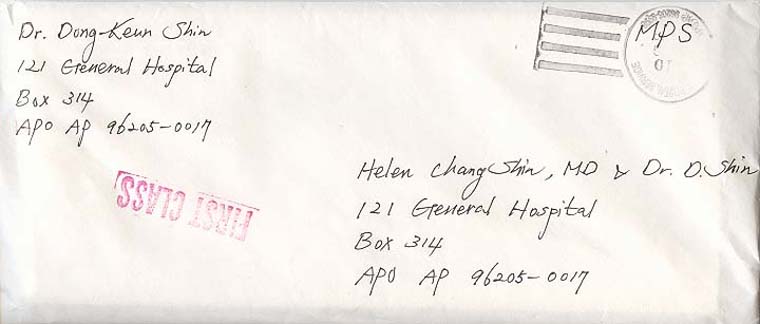 Dr. Dong-Keun Shin
121 General Hospital
Box 314
APO AP 96205-0017
MPS
FIRST CLASS
Helen Chang Shin, MD & Dr. D. Shin
121 General Hospital
Box 314
APO AP 96205-0017